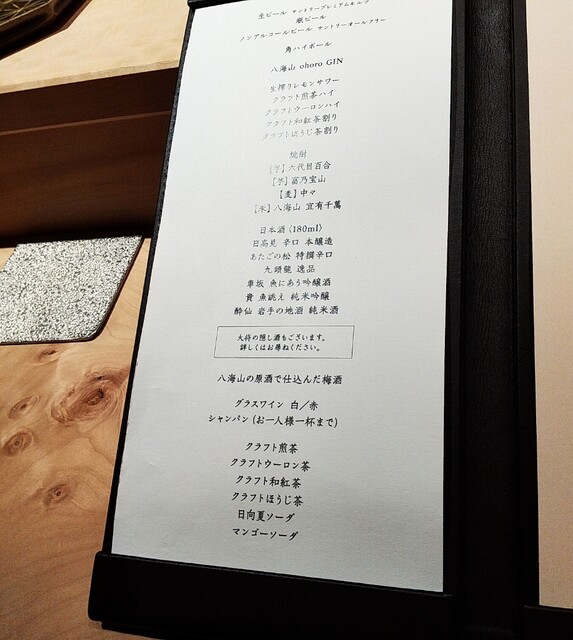 生ビール サントリープレミアムモルツ
瓶ビール
ノンアルコールビール サントリーオールフリー
角ハイボール
八海山 ohoro GIN
生搾りレモンサワー
クラフト煎茶ハイ
クラフトウーロンハイ
クラフト和紅茶割り
クラフトほうじ茶割り
焼酎
[芋] 六代目百合
[芋] 富乃宝山
[麦] 中々
[米] 八海山 宜有千萬
日本酒 (180ml)
日高見 辛口 本醸造
あたごの松 特撰辛口
九頭龍 逸品
車坂 魚にあう吟醸酒
貴 魚誂え 純米吟醸
酔仙 岩手の地酒 純米酒
大将の隠し酒もございます。
詳しくはお尋ねください。
八海山の原酒で仕込んだ梅酒
グラスワイン 白/赤
シャンパン (お一人様一杯まで)
クラフト煎茶
クラフトウーロン茶
クラフト和紅茶
クラフトほうじ茶
日向夏ソーダ
マンゴーソーダ